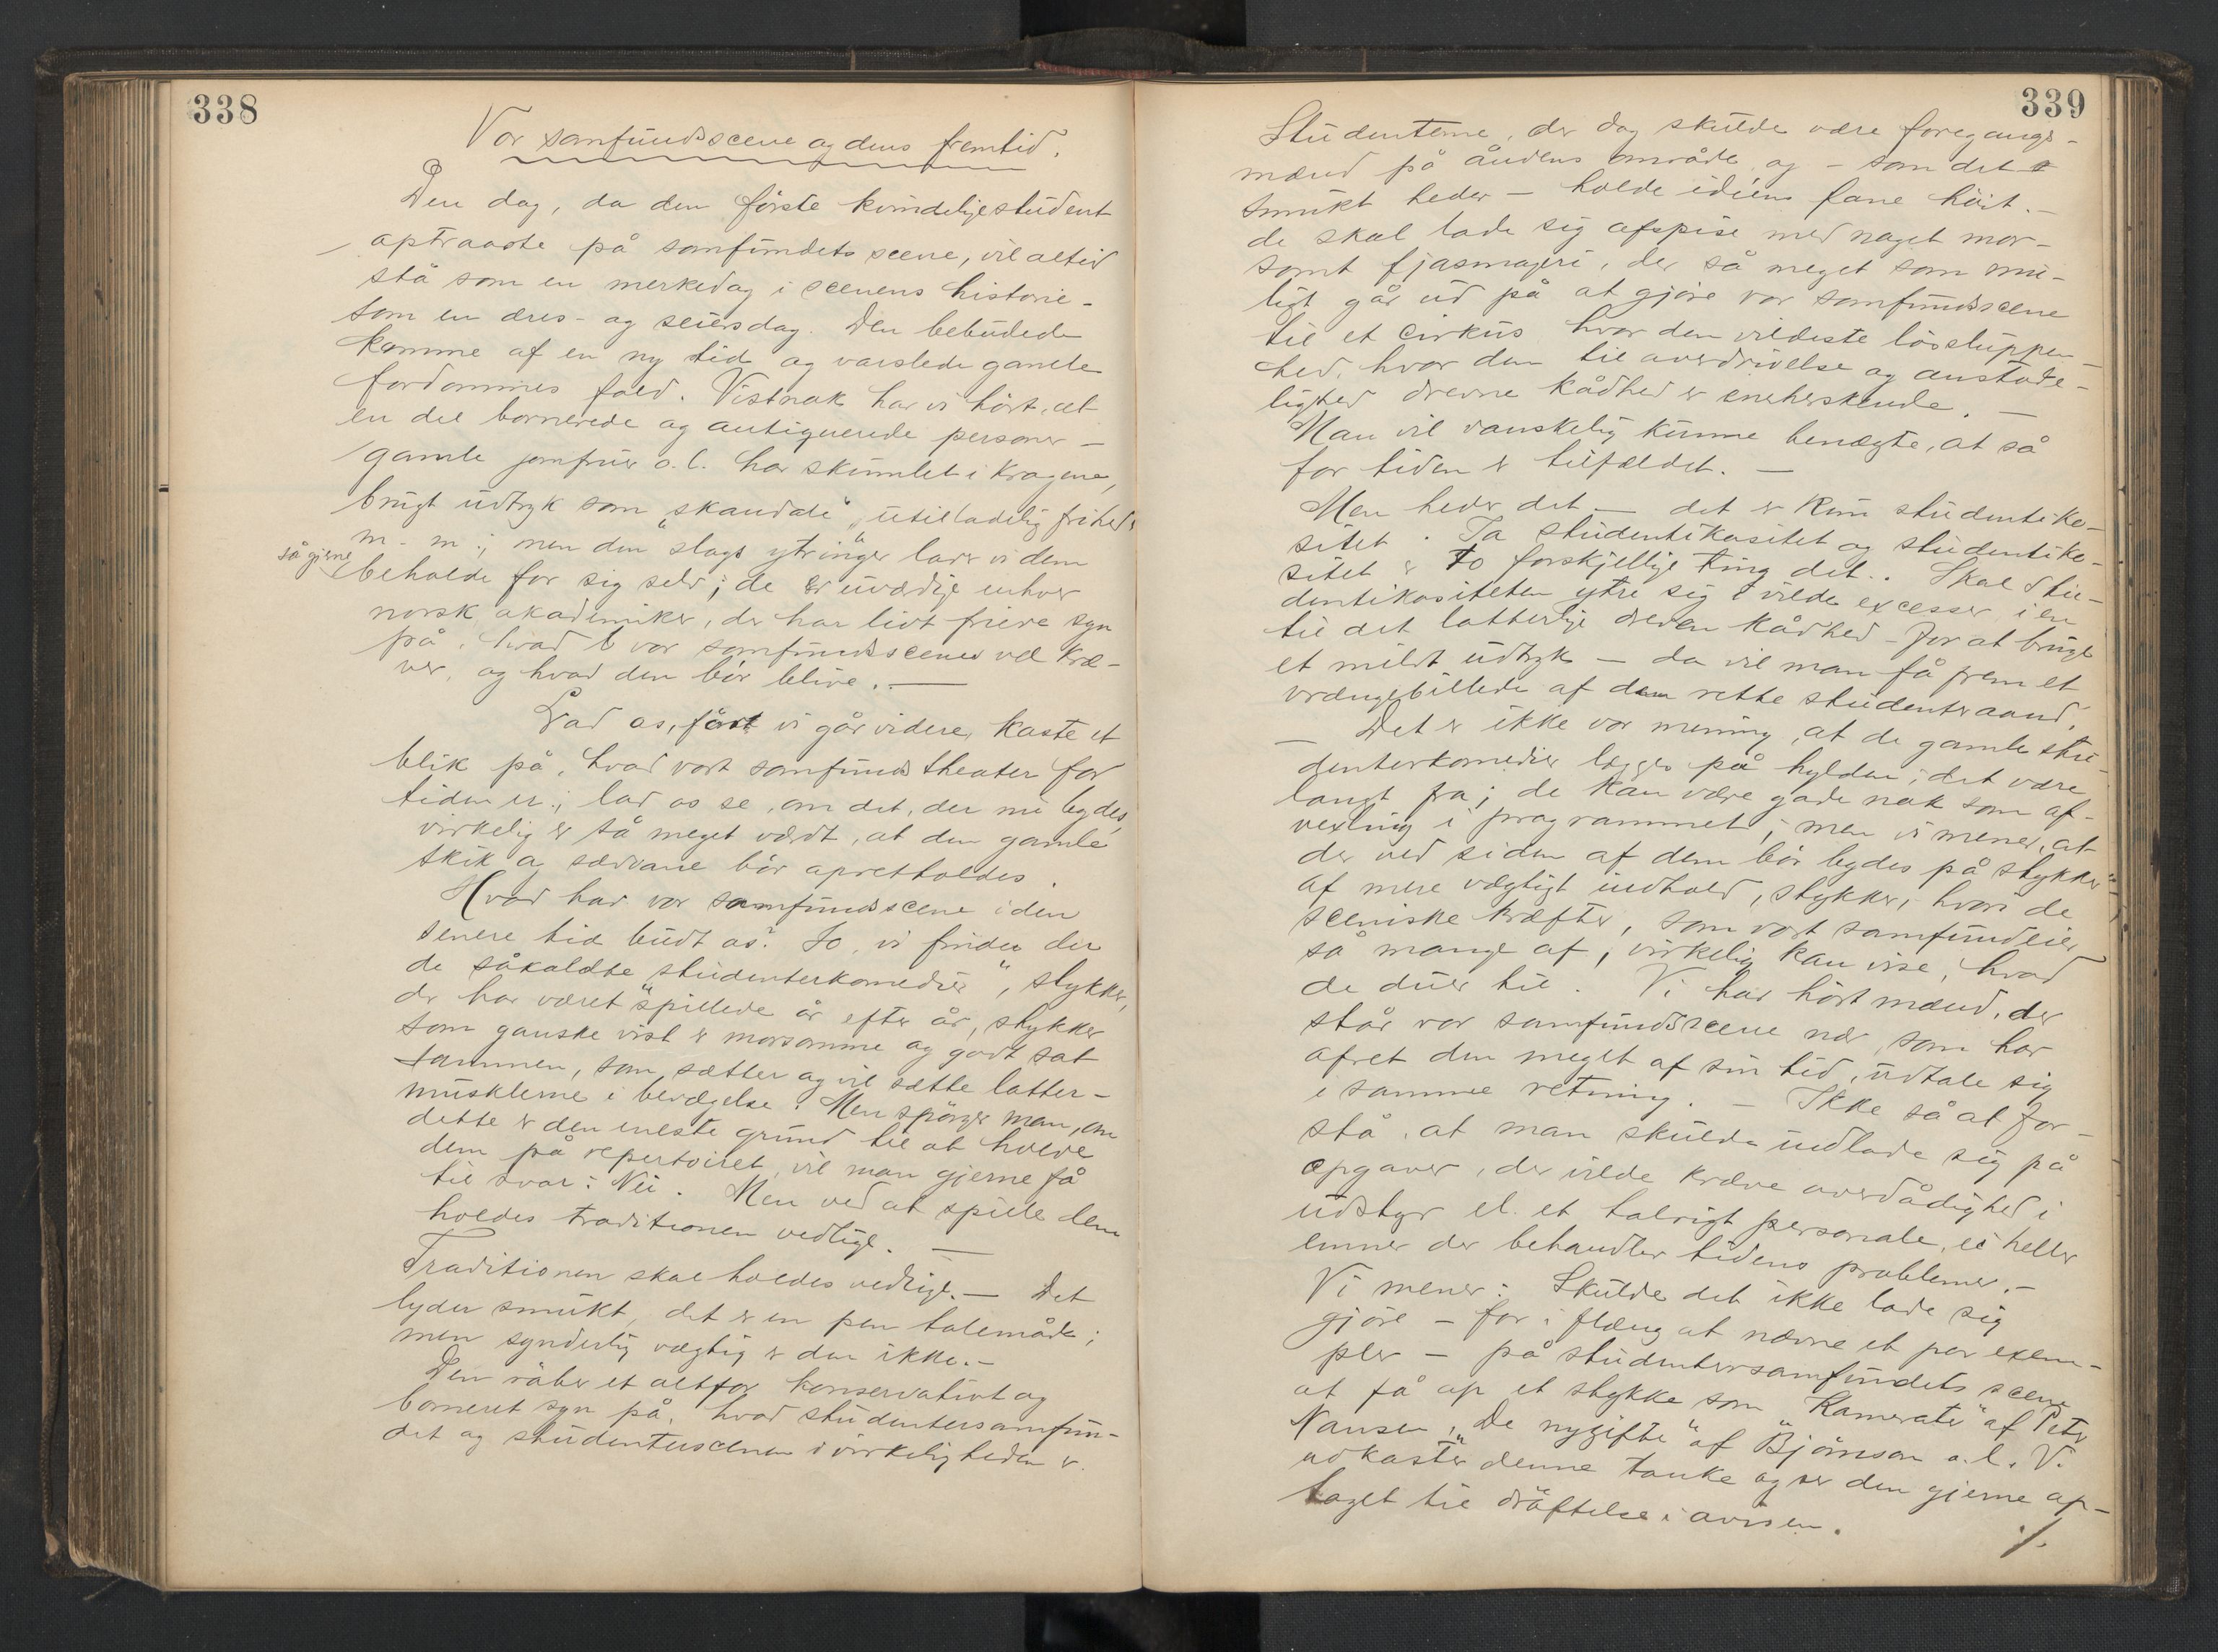 338
Vor samfundsscene og dens fremtid.
Den dag, da den første kvindelige student
optraadte på samfundets scene, vil altid
stå som en merkedag i scenens historie –
som en æres- og seiersdag. Den bebudede
komme af en ny tid og varslede gamle
fordommes fald. Vistnok har vi hørt, at
en del bornerede og antiquerede personer –
gamle jomfruer o.l. har skumlet i krogene,
brugt udtryk som „skandale", „utilladelig frihed"
m. m.; men den slags ytringer lar vi dem
så gjerne
beholde for sig selv; de er uværdige enhver
norsk akademiker, der har lidt friere syn
på, hvad vor samfundsscene vel kræ-
ver, og hvad den bør blive. —
Lad os, først vi går videre, kaste et
blik på, hvad vort samfundstheater for
tiden er; lad os se, om det, der nu bydes,
virkelig er så meget værdt, at den gamle
skik og sædvane bør opretholdes.
Hvad har vor samfundsscene i den
senere tid budt os? Jo, vi finder der
de såkaldte „studenterkomedier", stykker,
der har været spillede år efter år, stykker
som ganske vist er morsomme og godt sat
sammen, som sætter og vil sætte latter-
musklerne i bevægelse. Men spørger man, om
dette er den eneste grund til at holde
dem på repertoiret, vil man gjerne få
til svar: Nei. Men ved at spille dem
holdes traditionen vedlige. —
Traditionen skal holdes vedlige. — Det
lyder smukt, det er en pen talemåde;
men synderlig vægtig er den ikke. –
Den røber et altfor konservativt og
borneret syn på, hvad studentersamfun-
det og studenterscenen i virkeligheden er.
339
Studenterne, der dog skulde være foregangs-
mænd på åndens område og – som det
smukt heder – holde idéens fane høit. –
de skal lade sig afspise med noget mor-
somt fjasmageri, der så meget som mu-
ligt går ud på at gjøre vor samfundsscene
til et cirkus hvor den vildeste løssluppen-
hed, hvor den til overdrivelse og anstøde-
lighed drevne kådhed er eneherskende. —
Man vil vanskelig kunne benægte, at så
for tiden er tilfældet. —
Men heder det — det er kun studentiko-
sitet. Ja studentikositet og studentiko-
sitet er to forskjellige ting det.. Skal stu-
dentikositeten ytre sig i vilde excesser i en
til det latterlige dreven kådhed – for at bruge
et mildt udtryk – da vil man få frem et
vrængebillede af den rette studenteraand.
— Det er ikke vor mening, at de gamle stu-
denterkomedier lægges på hylden; det være
langt fra; de kan være gode nok som af-
vexling i programmet; men vi mener, at
der ved siden af dem bør bydes på stykker
af mere vægtigt indhold, stykker, hvori de
sceniske kræfter, som vort samfund eier
så mange af, virkelig kan vise, hvad
de duer til. Vi har hørt mænd, der
står vor samfundsscene nær, som har
ofret den meget af sin tid, udtale sig
i samme retning. – Ikke så at for-
stå, at man skulde indlade sig på
opgaver, der vilde kræve overdådighed i
udstyr el. et talrigt personale, ei heller
emner der behandler tidens problemer. –
Vi mener: Skulde det ikke lade sig
gjøre – for i flæng at nævne et par exem-
pler – på studentersamfundets scene
at få op et stykke som „Kamerater" af Peter
Nansen, „De nygifte" af Björnson o.l. Vi
udkaster denne tanke og ser den gjerne op-
taget til drøftelse i avisen.
./.